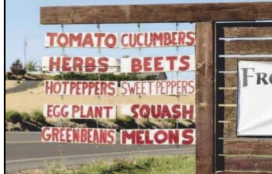 TOMATO CUCUMBERS
HERBS BEETS
HOT PEPPERS SWEET PEPPERS
EGG PLANT SQUASH
GREEN BEANS MELONS
FRO